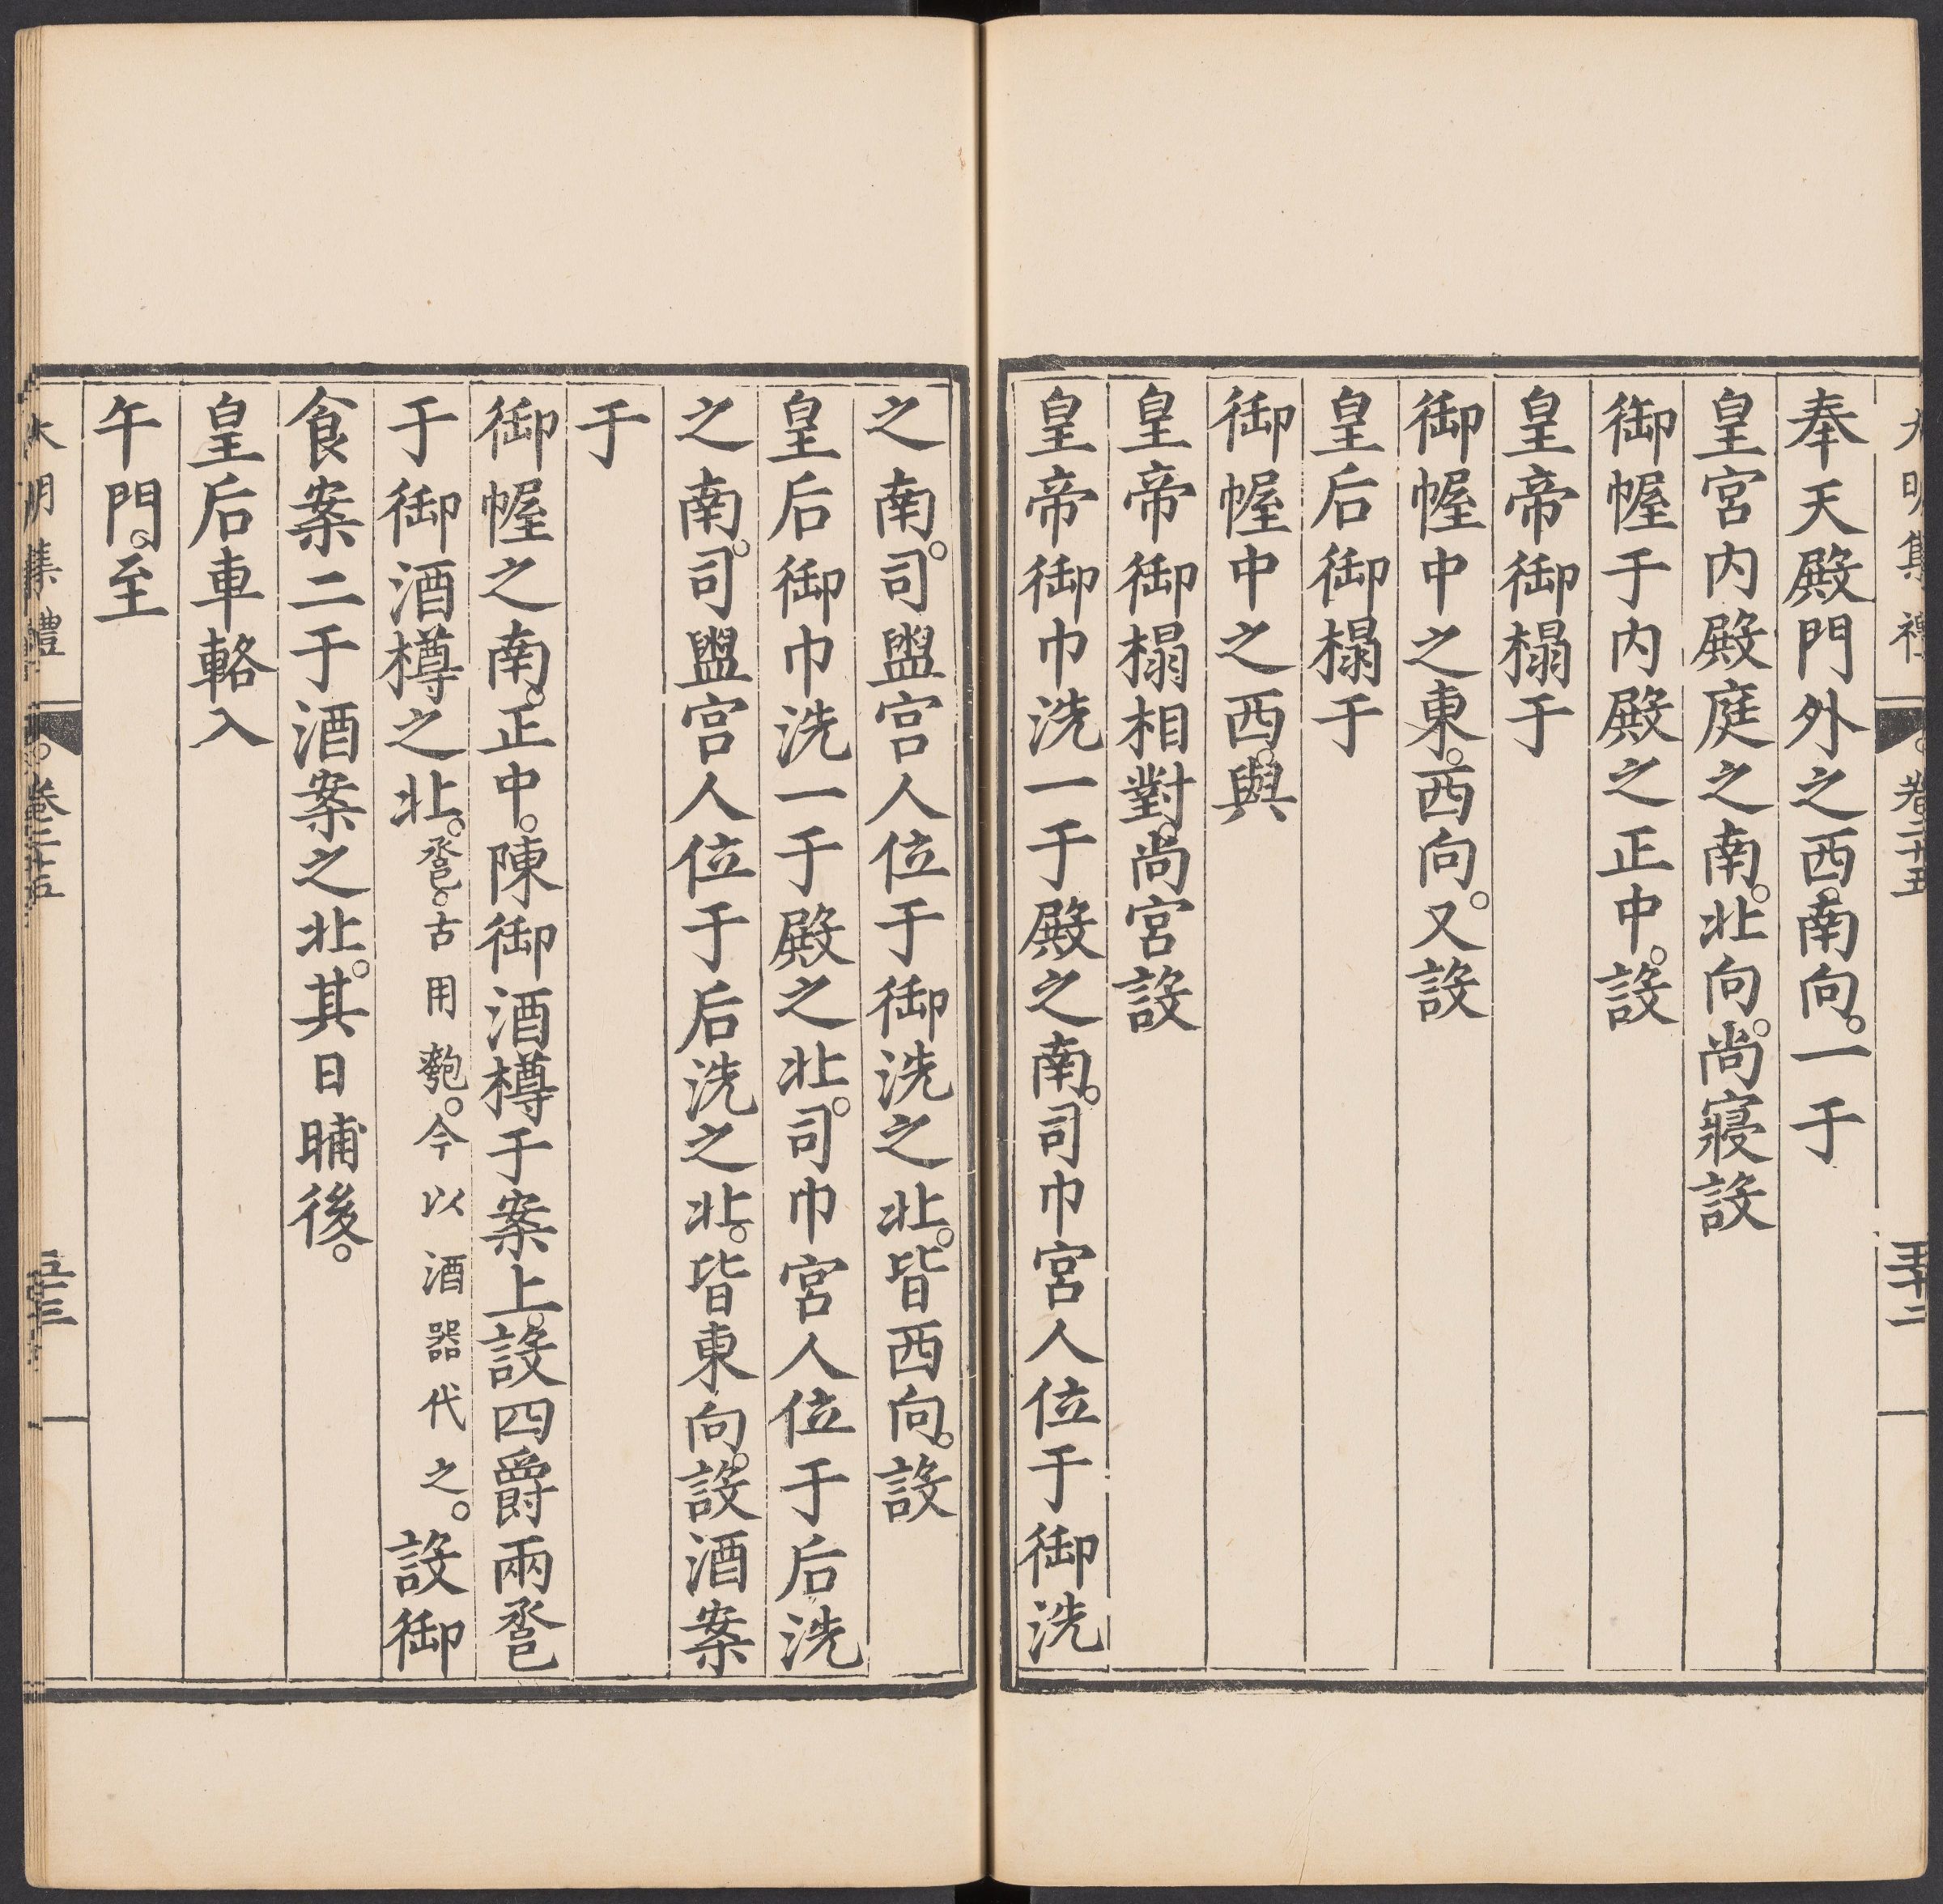 大明集禮 卷二十五 五十二
奉天殿門外之西。南向。一于
皇宮内殿庭之南。北向。尚寢設
御幄于内殿之正中。設
皇帝御榻于
御幄中之東。西向。又設
皇后御榻于
御幄中之西。與
皇帝御榻相對。尚宮設
皇帝御巾洗一于殿之南。司巾宮人位于御洗
之南。司盥宮人位于御洗之北。皆西向。設
皇后御巾洗一于殿之北。司巾宮人位于后洗
之南。司盥宮人位于后洗之北。皆東向。設酒案
于
御幄之南。正中。陳御酒樽于案上。設四爵兩卺
于御酒樽之北。卺。古用匏。今以酒器代之。設御
食案二于酒案之北。其日晡後。
皇后車輅入
午門。至
大明集禮 卷二十五 五十三